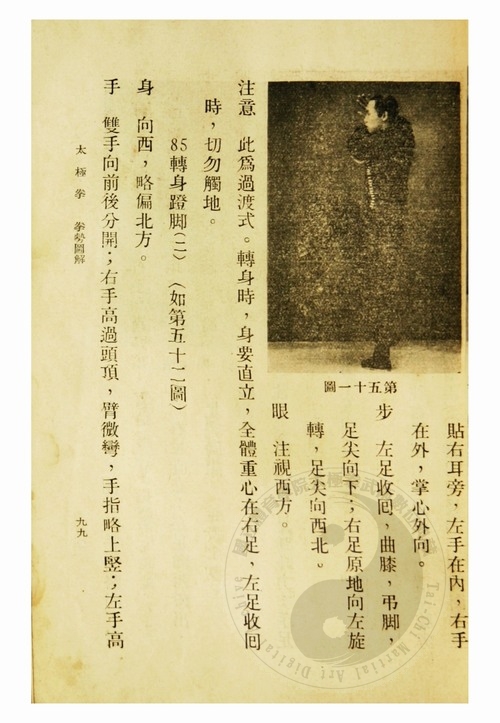 貼右耳旁，左手在內，右手
在外，掌心外向。
步　左足收回，曲膝，弔脚，
足尖向下；右足原地向左旋
轉，足尖向西北。
眼　注視西方。
第五十一圖
注意　此為過渡式。轉身時，身要直立，全體重心在右足，左足收回
時，切勿觸地。
85轉身蹬脚(二)　(如第五十二圖)
身　向西，略偏北方。
手　雙手向前後分開；右手高過頭頂，臂微彎，手指略上竪；左手高
太極拳　拳勢圖解
九九
Tai-Chi Martial Art Digital